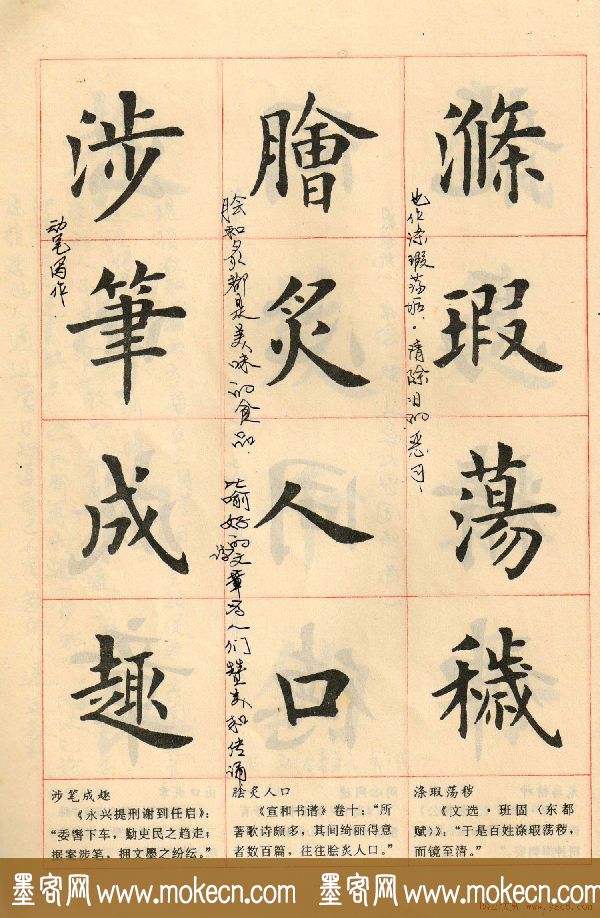 滌瑕蕩穢
膾炙人口
涉筆成趣
也作涤瑕荡垢。清除旧的恶习。
脍和炙都是美味的食品.
比喻好的诗文章为人们赞美和传诵
动笔写作.
涤瑕荡秽
《文选·班固〈东都
赋〉》：“于是百姓涤瑕荡秽，
而镜至清。”
脍炙人口
《宣和书谱》卷十：“所
著歌诗颇多，其间绮丽得意
者数百篇，往往脍炙人口。”
涉笔成趣
《永兴提刑谢到任启》：
“委辔下车，勤吏民之趋走；
据案涉笔，拥文墨之纷纭。”
墨客网 www.mokecn.com 墨客网 www.mokecn.com